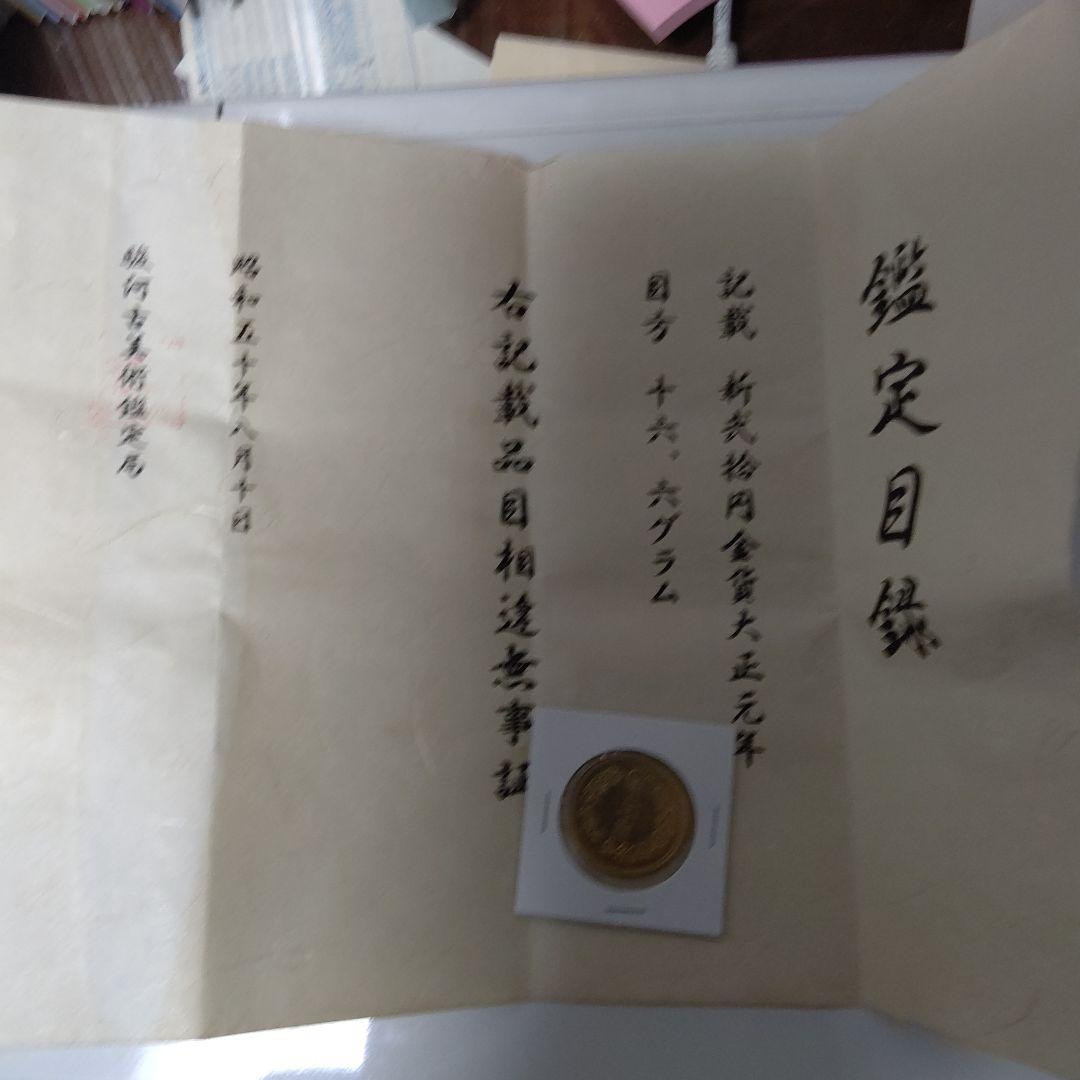 鑑定目録
記載 新弐拾円金貨大正元年
目方 十六。六グラム
右記載品目相違無事証
昭和五十年八月十日
駿河古美術鑑定局